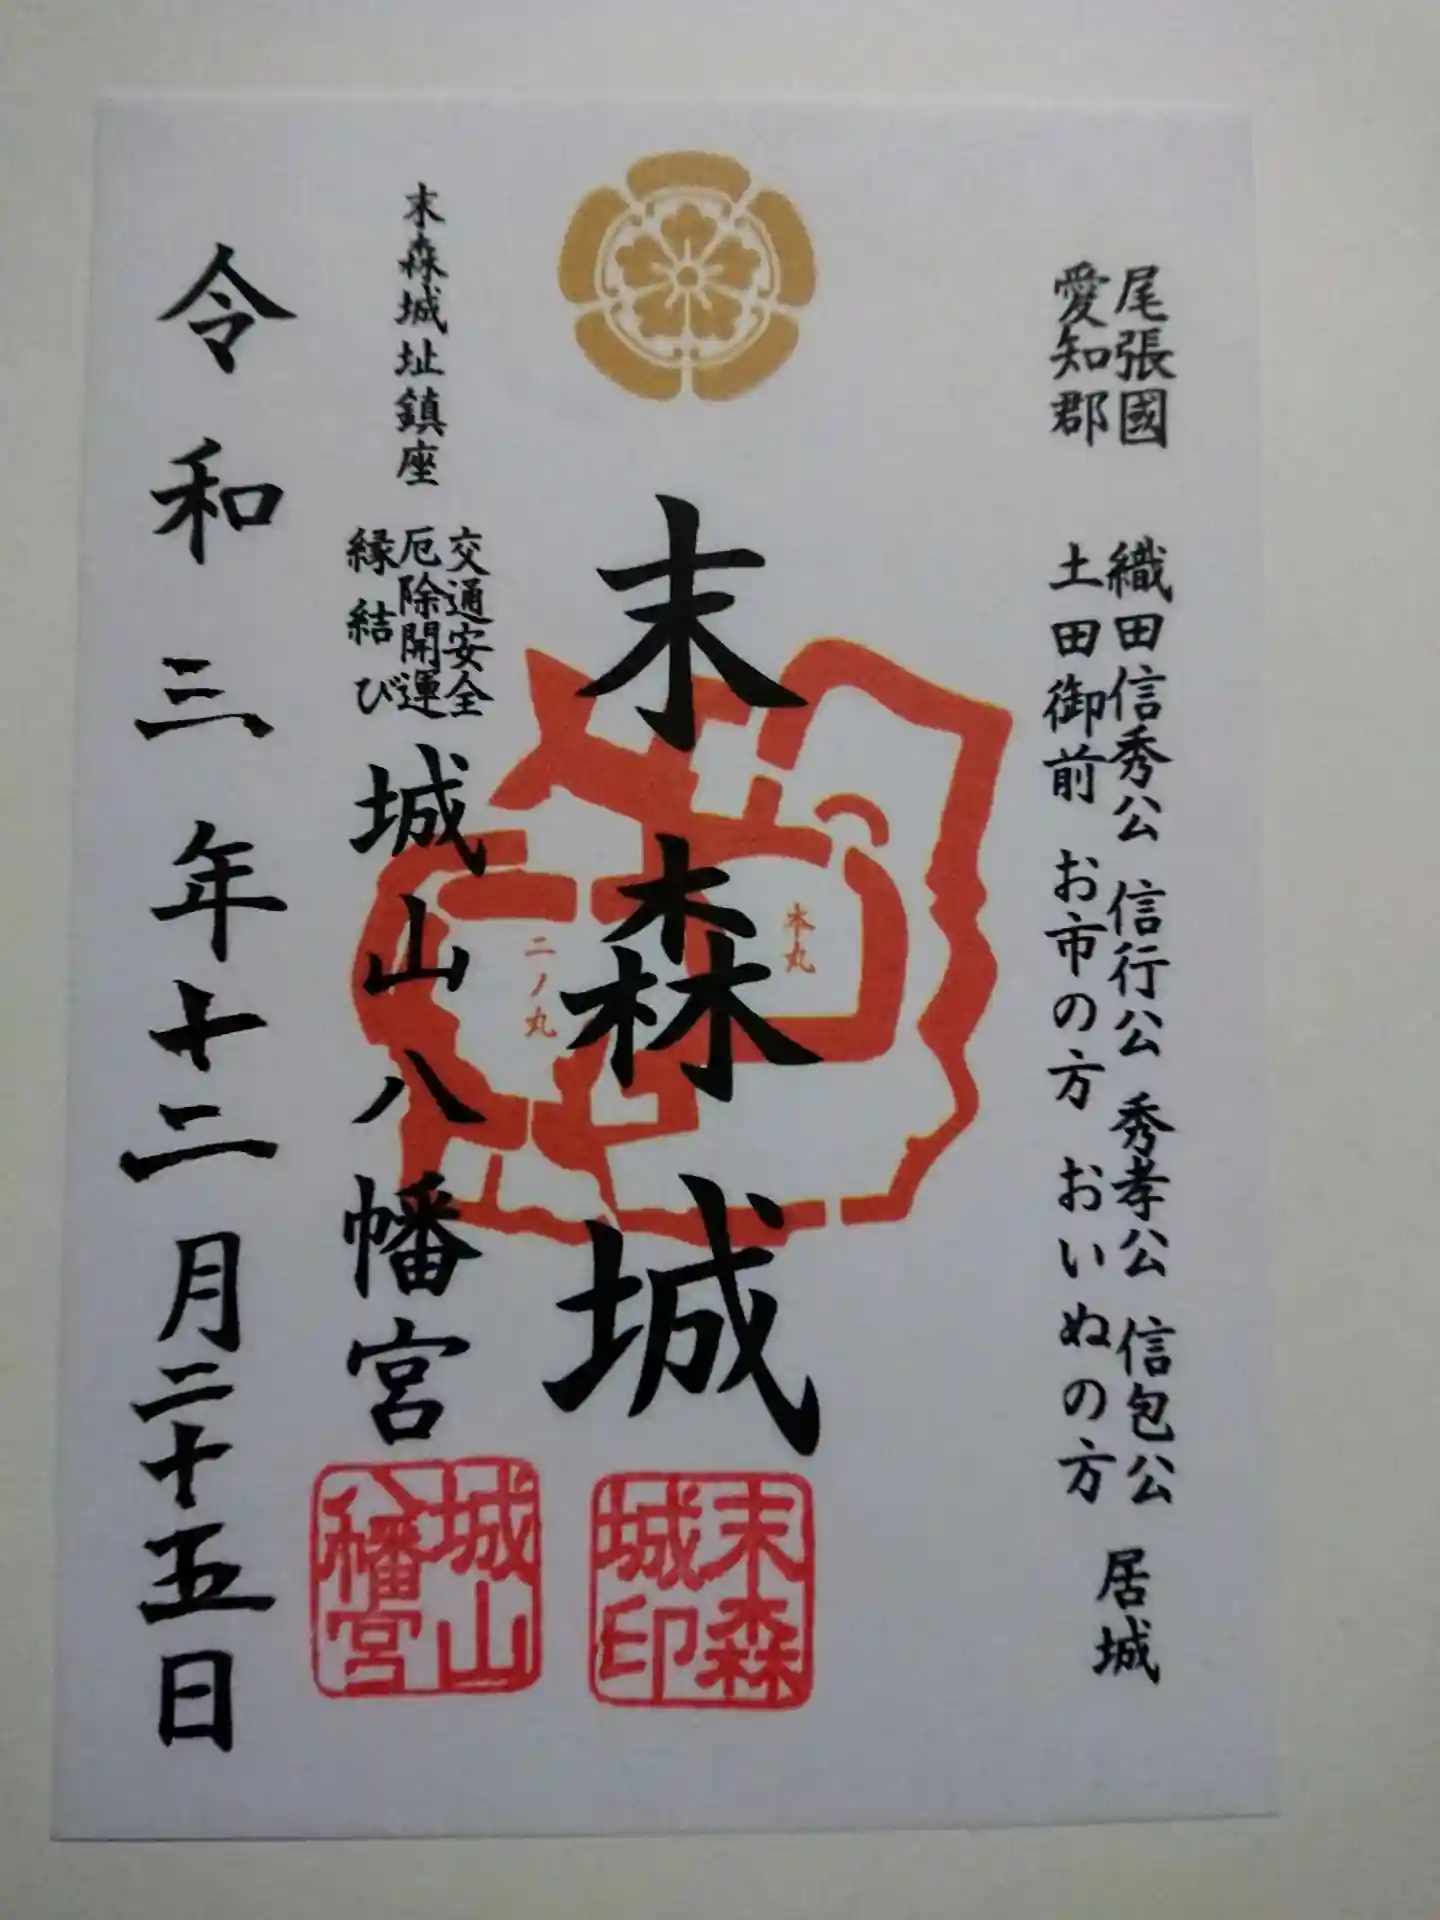 尾張國
愛知郡
織田信秀公 信行公 秀孝公 信包公
土田御前 お市の方 おいぬの方
居城
末森城
本丸
二ノ丸
末森城印
末森城址鎮座
交通安全
厄除開運
縁結び
城山八幡宮
城山八幡宮
令和三年十二月二十五日